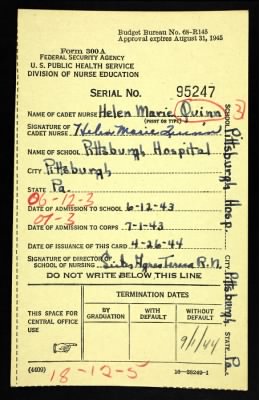 Budget Bureau No. 68-R145
Approval expires August 31, 1945
Form 300A
FEDERAL SECURITY AGENCY
U. S. PUBLIC HEALTH SERVICE
DIVISION OF NURSE EDUCATION
SERIAL NO. 95247
NAME OF CADET NURSE Helen Marie Quinn
(PRINT OR TYPE)
SIGNATURE OF CADET NURSE Helen Marie Quinn
NAME OF SCHOOL Pittsburgh Hospital
CITY Pittsburgh
STATE Pa.
06-12-3
07-3
DATE OF ADMISSION TO SCHOOL 6-12-43
DATE OF ADMISSION TO CORPS 7-1-43
DATE OF ISSUANCE OF THIS CARD 4-26-44
SIGNATURE OF DIRECTOR OF SCHOOL OF NURSING R.N.
DO NOT WRITE BELOW THIS LINE
THIS SPACE FOR CENTRAL OFFICE USE
TERMINATION DATES
BY GRADUATION
WITH DEFAULT
WITHOUT DEFAULT
9/1/44
(4409)
18-12-5
SCHOOL Pittsburgh Hosp. CITY Pittsburgh STATE Pa.